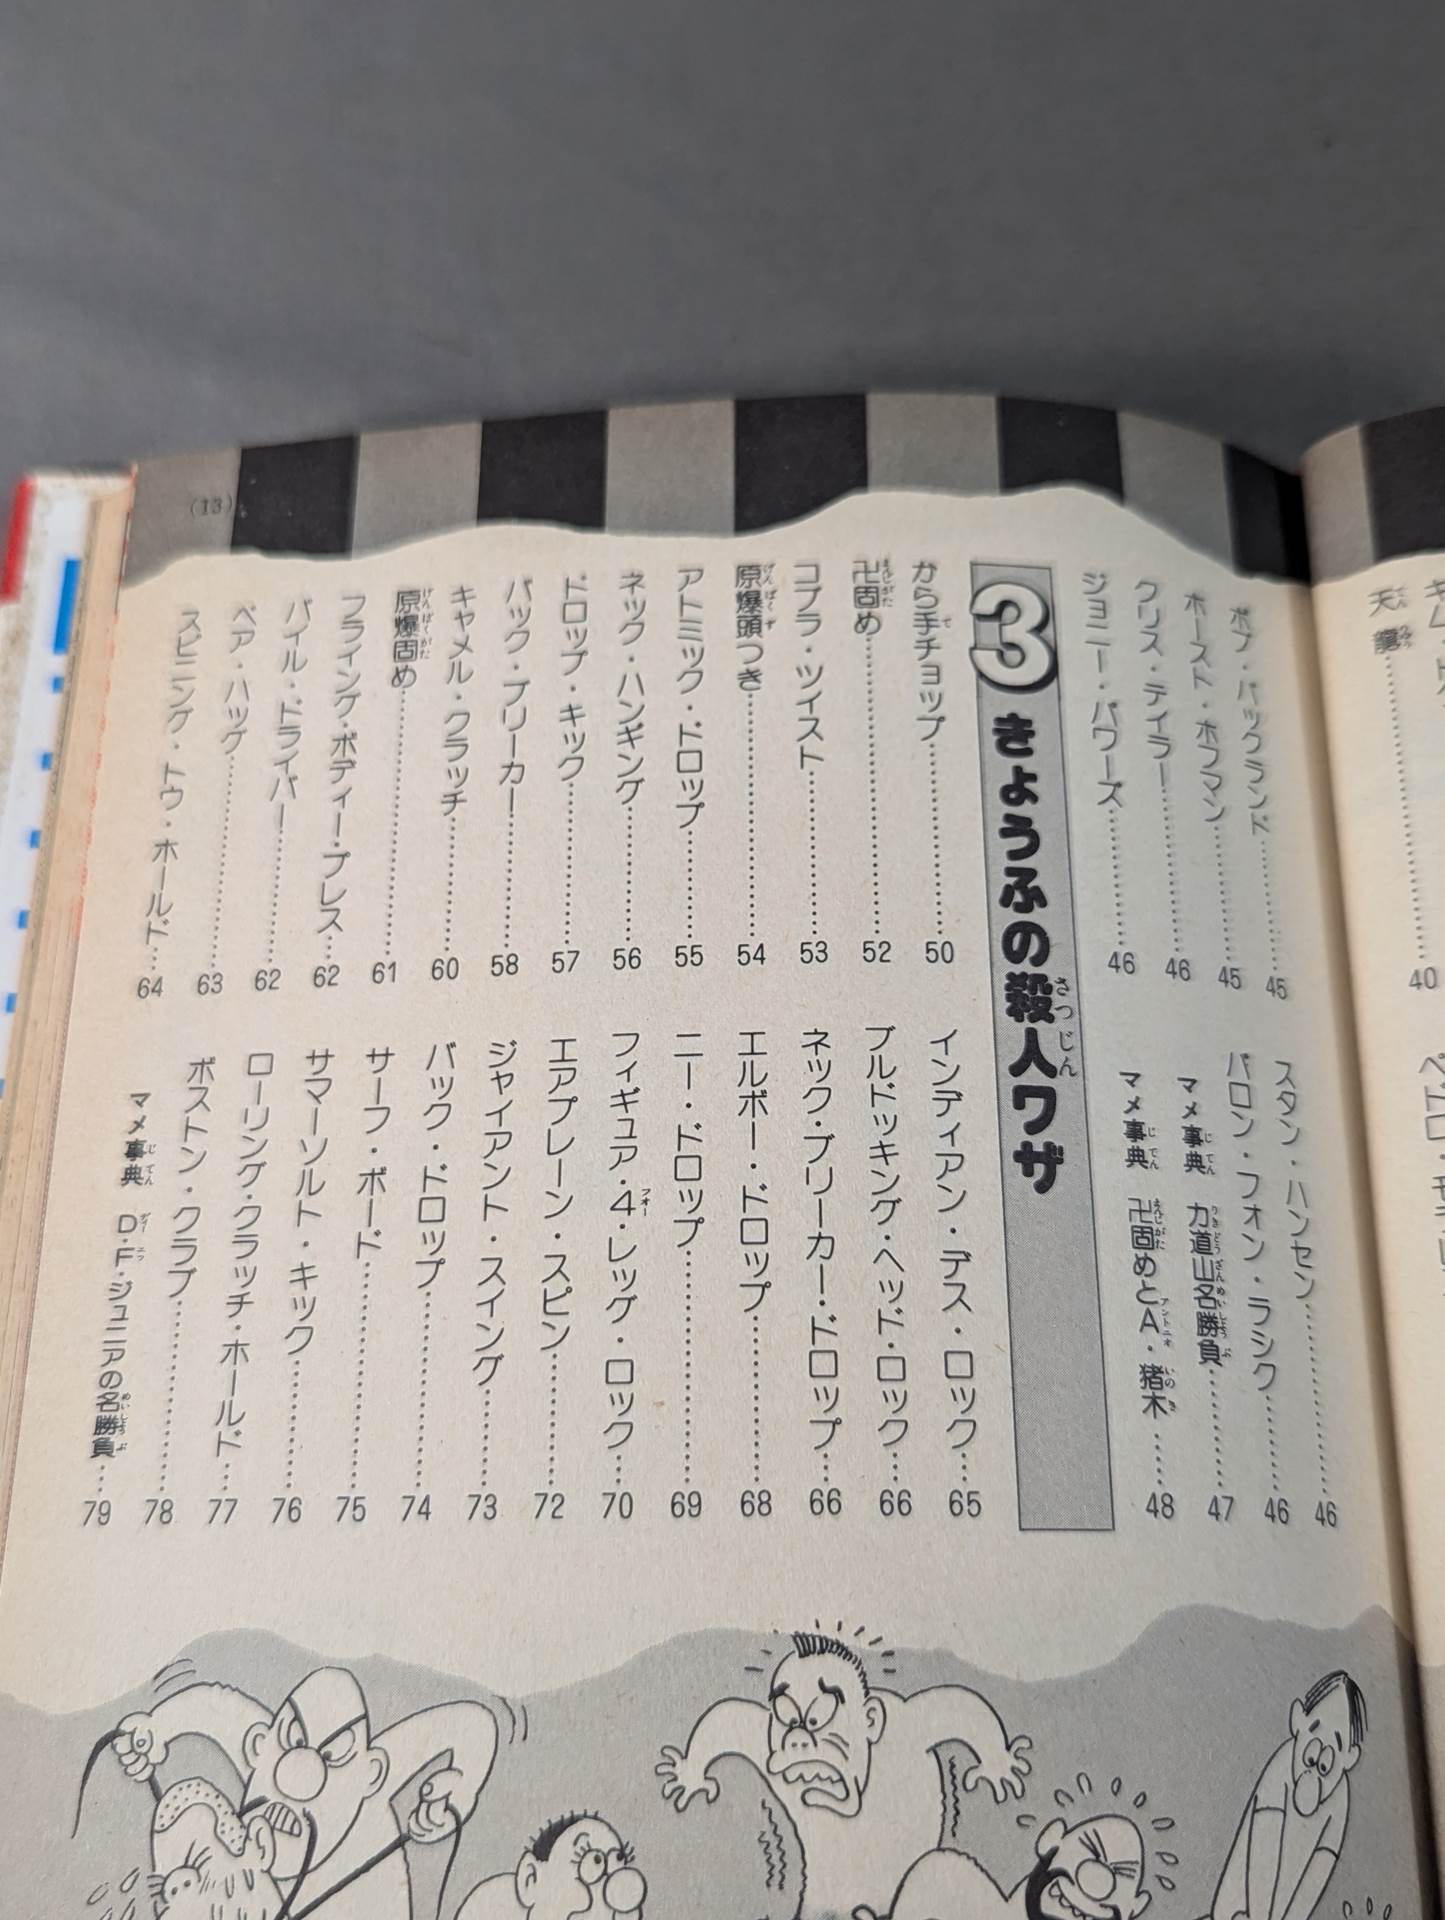 ボブ・バックランド……45
ホースト・ホフマン……45
クリス・テイラー……46
ジョニー・パワーズ……46
スタン・ハンセン……46
バロン・フォン・ラシク……46
マメ事典 力道山名勝負……47
マメ事典 卍固めとA・猪木……48
3 きょうふの殺人ワザ
から手チョップ……50
卍固め……52
コブラ・ツイスト……53
原爆頭つき……54
アトミック・ドロップ……55
ネック・ハンギング……56
ドロップ・キック……57
バック・ブリーカー……58
キャメル・クラッチ……60
原爆固め……61
フライング・ボディー・プレス……62
パイル・ドライバー……62
ベア・ハッグ……63
スピニング・トウ・ホールド……64
インディアン・デス・ロック……65
ブルドッキング・ヘッド・ロック……66
ネック・ブリーカー・ドロップ……66
エルボー・ドロップ……68
ニー・ドロップ……69
フィギュア・4・レッグ・ロック……70
エアプレーン・スピン……72
ジャイアント・スイング……73
バック・ドロップ……74
サーフ・ボード……75
サマーソルト・キック……76
ローリング・クラッチ・ホールド……77
ボストン・クラブ……78
マメ事典 D・F・ジュニアの名勝負……79
(13)